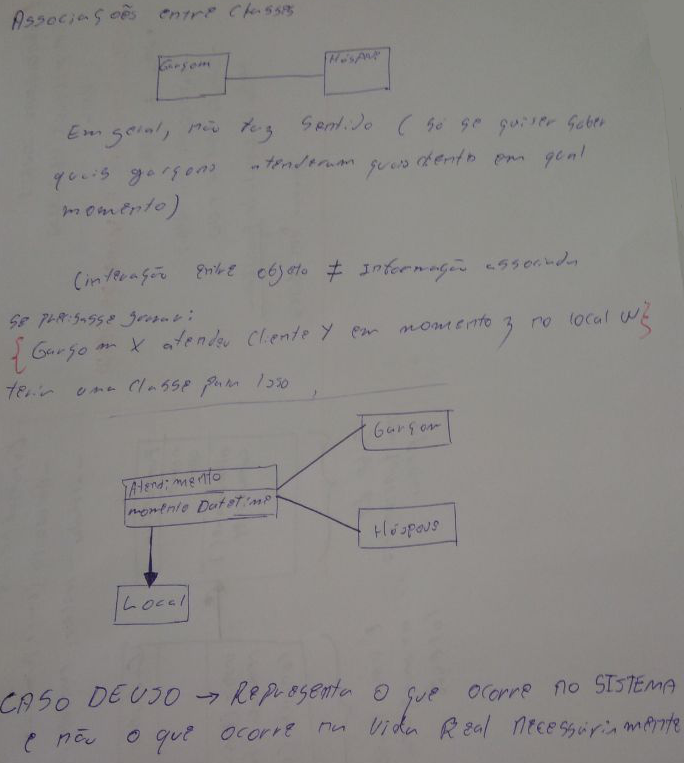 Associações entre Classes
Garçom
Hóspede
Em geral, não faz sentido (só se quiser saber
quais garçons atenderam quais clientes em qual
momento)
(interação entre objeto ≠ Informação associada
se precisasse gravar:
{Garçom X atendeu Cliente Y em momento z no local W}
teria uma classe para isso,
Garçom
Atendimento
momento DateTime
Hóspede
Local
CASO DE USO → Representa o que ocorre no SISTEMA
e não o que ocorre na vida Real Necessáriamente